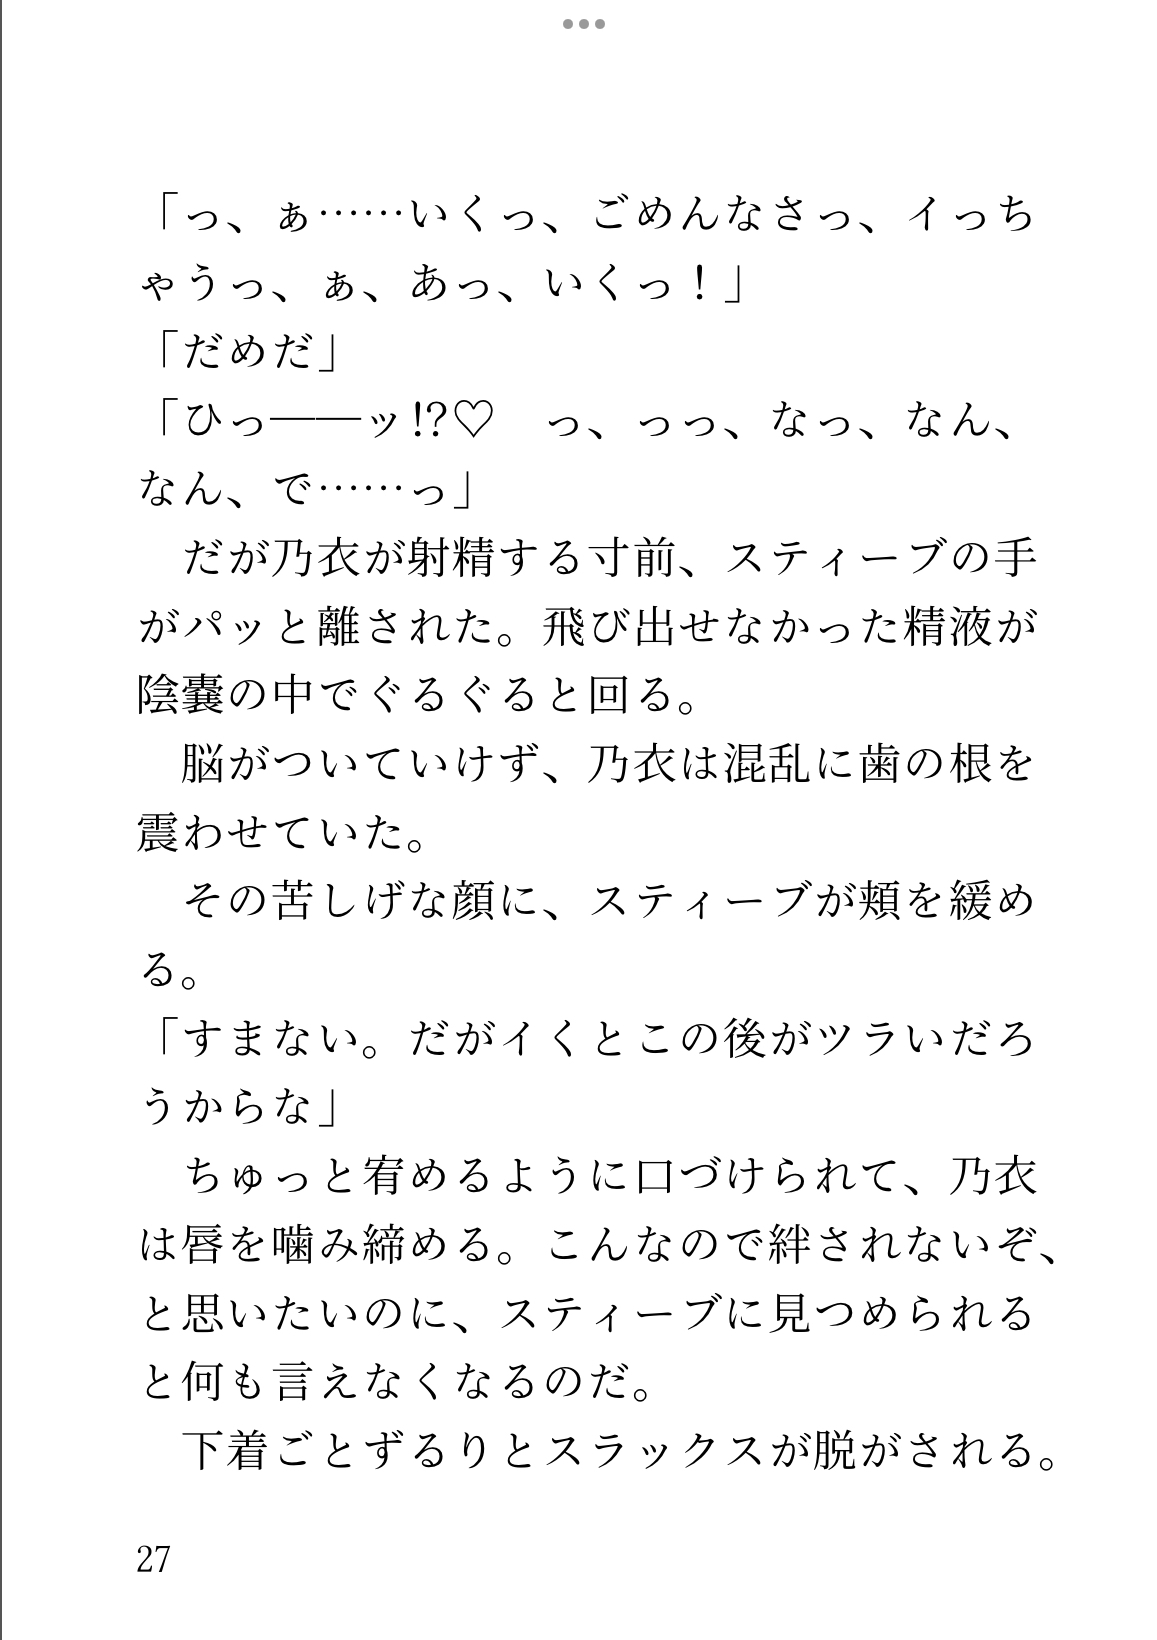 「っ、ぁ……いくっ、ごめんなさっ、イっち
ゃうっ、ぁ、あっ、いくっ！」
「だめだ」
「ひっ――ッ!?♡　っ、っっ、なっ、なん、
なん、で……っ」
　だが乃衣が射精する寸前、スティーブの手
がパッと離された。飛び出せなかった精液が
陰嚢の中でぐるぐると回る。
　脳がついていけず、乃衣は混乱に歯の根を
震わせていた。
　その苦しげな顔に、スティーブが頬を緩め
る。
「すまない。だがイくとこの後がツラいだろ
うからな」
　ちゅっと宥めるように口づけられて、乃衣
は唇を噛み締める。こんなので絆されないぞ、
と思いたいのに、スティーブに見つめられる
と何も言えなくなるのだ。
　下着ごとずるりとスラックスが脱がされる。
27